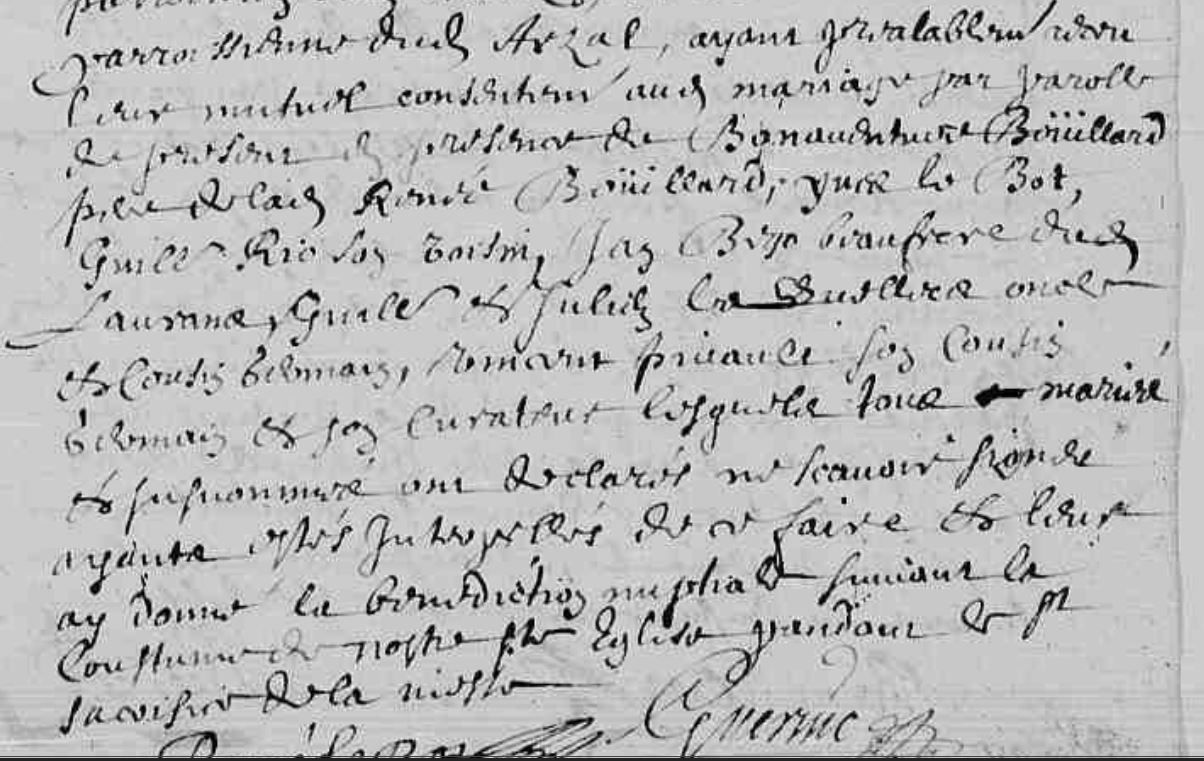 parroissienne dud Arzal, ayant prealablem receu
leur mutuel consentem aud mariage par parolle
de presant en presence de Bonaventure Boüillard
pere de lad Renée Boüillard, yves le Bot,
Guill Rio son voisin, Jan Bego beaufrere dud
Laurans, Guill et Julien le oncle
et Cousin Germain, son Cousin
Germain et son Curateur lesquels tous mariés
et susnommés ont declarés ne scavoir signer
ayants estés Interpellés de ce faire et leur
ay donné la benediction nuptialle suivant la
Coustume de nostre ste Eglise pandant le st
sacrifice de la messe